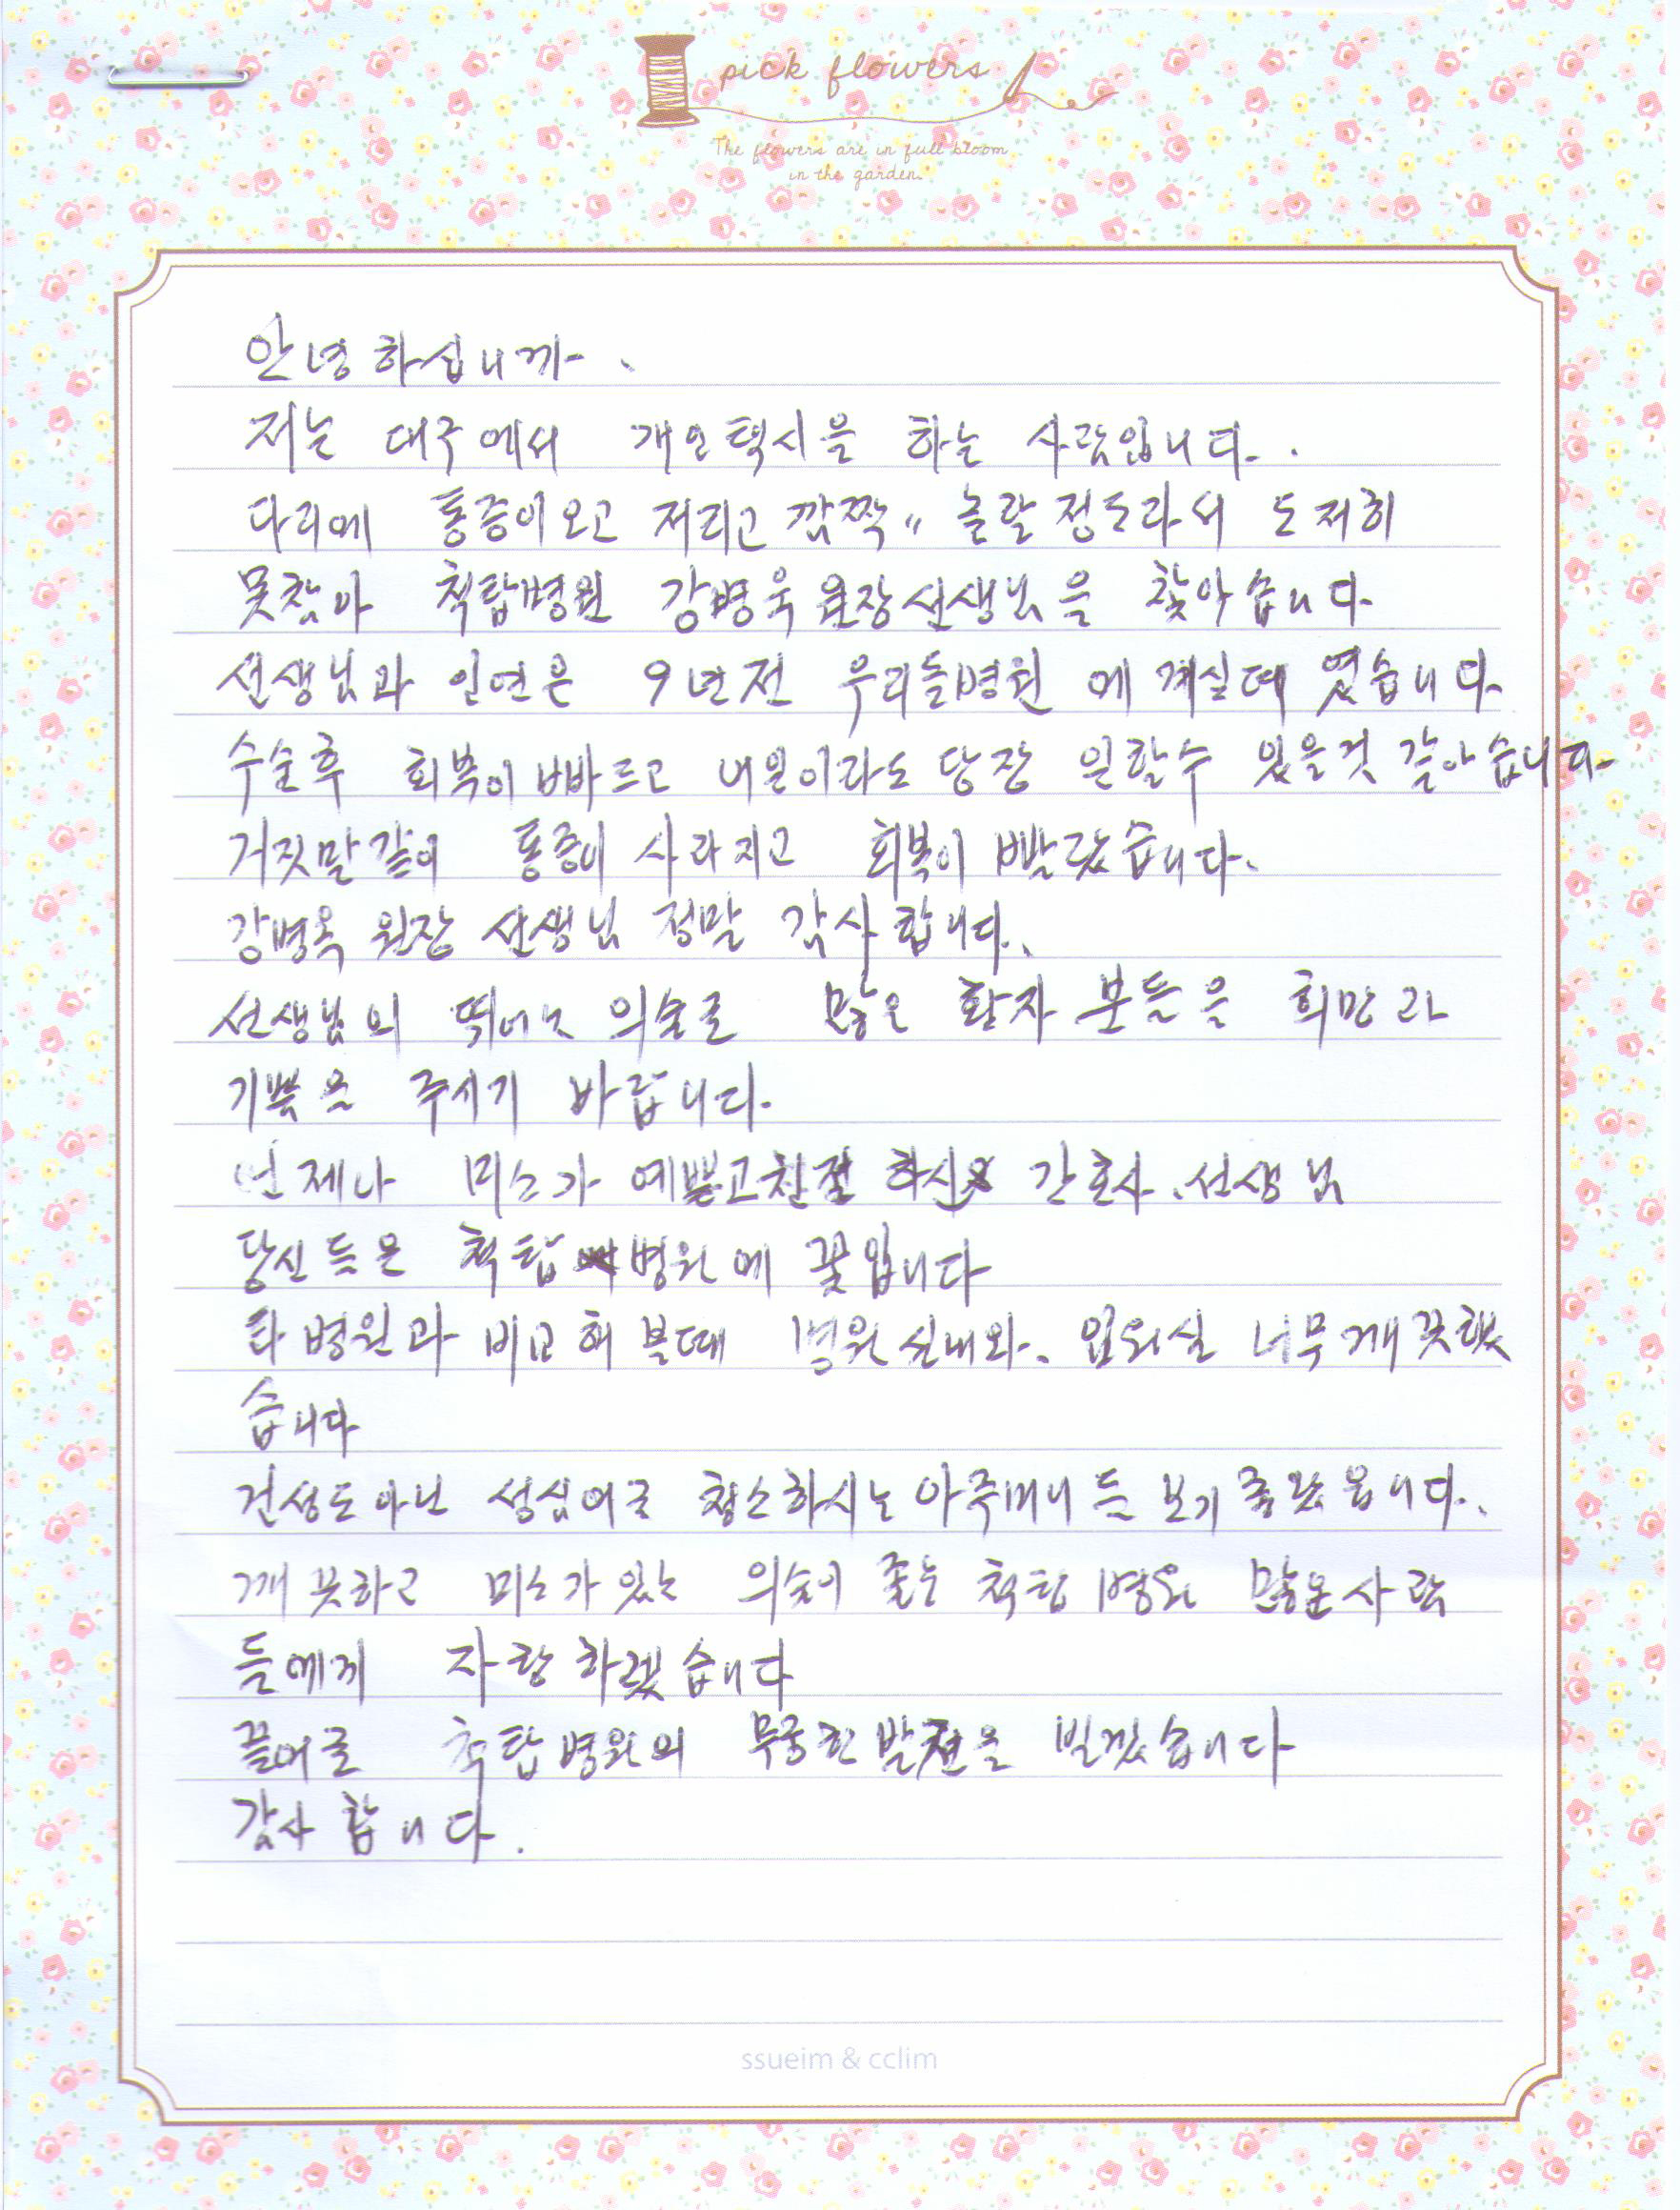 pick flowers
The flowers are in full bloom
in the garden.
안녕하십니까.
저는 대구에서 개인택시을 하는 사람입니다.
다리에 통증이오고 저리고 깜짝〃 놀랄정도라서 도저히
못참아 척탑병원 강병욱원장선생님을 찾아습니다
선생님과 인연은 9년전 우리들병원에 계실때 였습니다.
수술후 회복이 빠르고 내일이라도 당장 일할수 있을것 같아습니다.
거짓말같이 통증이 사라지고 회복이 빨랐습니다.
강병욱 원장 선생님 정말 감사합니다.
선생님의 뛰어난 의술로 많은 환자분들을 희망과
기쁨을 주시기 바랍니다.
언제나 미소가 예쁘고친절 하신 간호사.선생님
당신들은 척탑 병원에 꽃입니다
타병원과 비교해 볼때 병원실내와. 입원실 너무깨끗했
습니다
건성도아닌 성심어로 청소하시는아주머니들 보기좋았읍니다.
깨끗하고 미소가 있는 의술이 좋은 척탑병원 많은사람
들에게 자랑하겠습니다
끝어로 척탑병원의 무궁한발전을 빌겠습니다
감사합니다.
ssueim & cclim